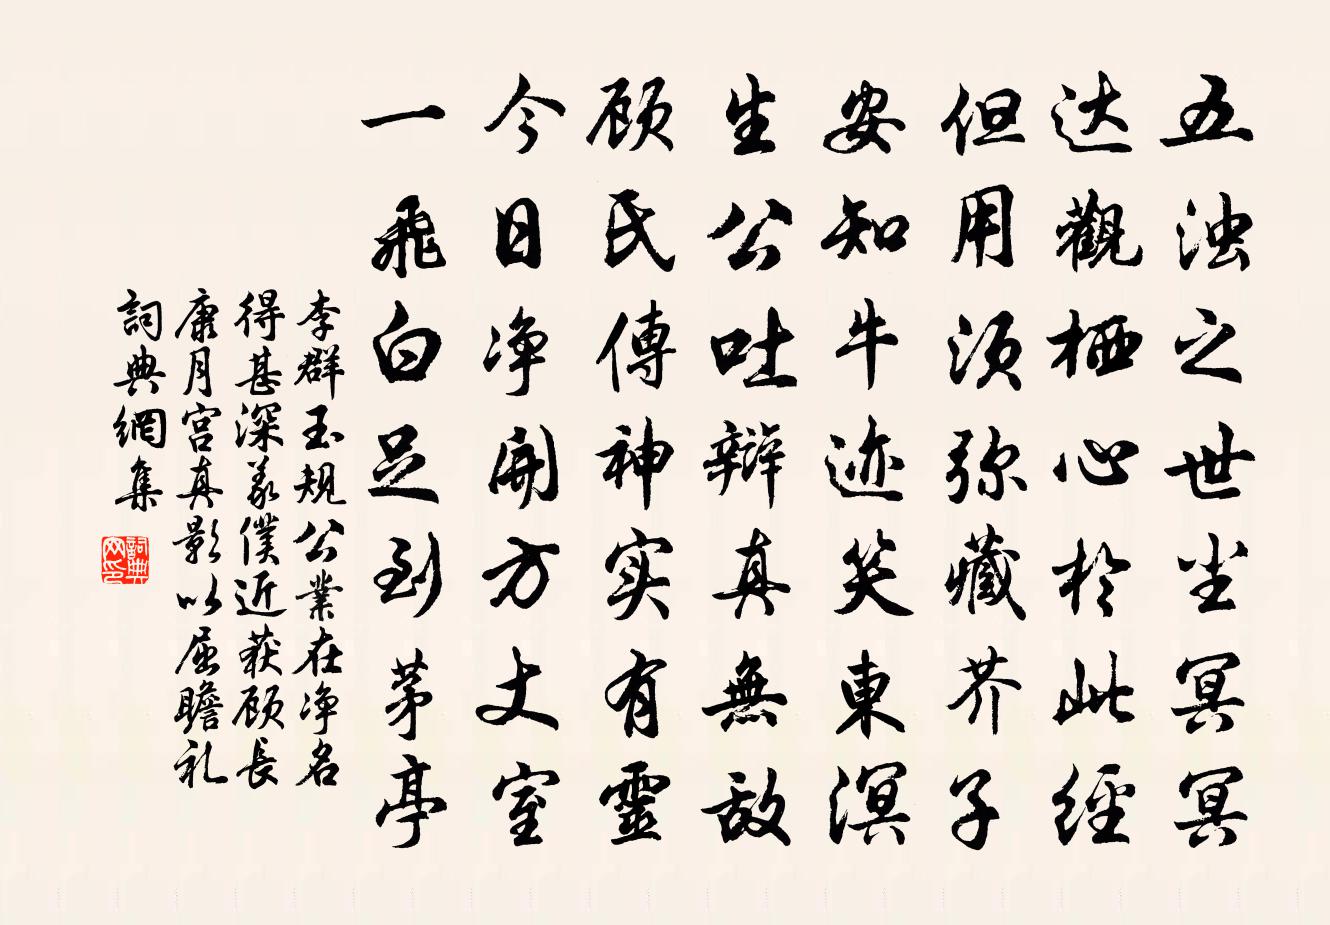 五浊之世尘冥冥
达觀栖心於此經
但用须弥藏芥子
安知牛迹笑東溟
生公吐辯真無敌
顾氏傳神实有靈
今日净開方丈室
一飛白足到茅亭
李群玉規公業在净名
得甚深义僕近获顾長
康月宫真影以屈瞻礼
詞典網集
詞典
网印